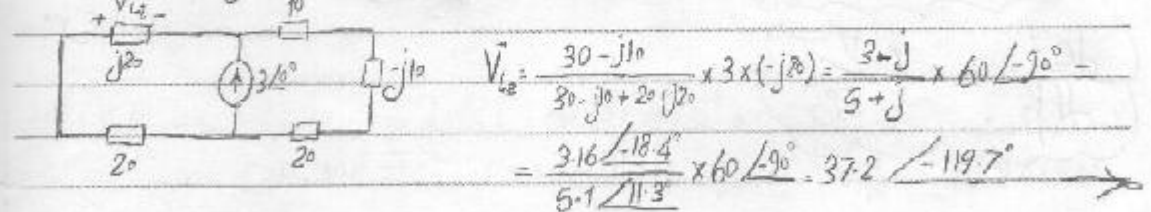 + V_L2 - 10
j20 3∠0° -j10
20 20
V⃗_L2 = (30 - j10)/(30 - j10 + 20 + j20) × 3 × (-j20) = (3 - j)/(5 + j) × 60 ∠-90° =
= (3.16 ∠-18.4°)/(5.1 ∠11.3°) × 60 ∠-90° = 37.2 ∠-119.7°